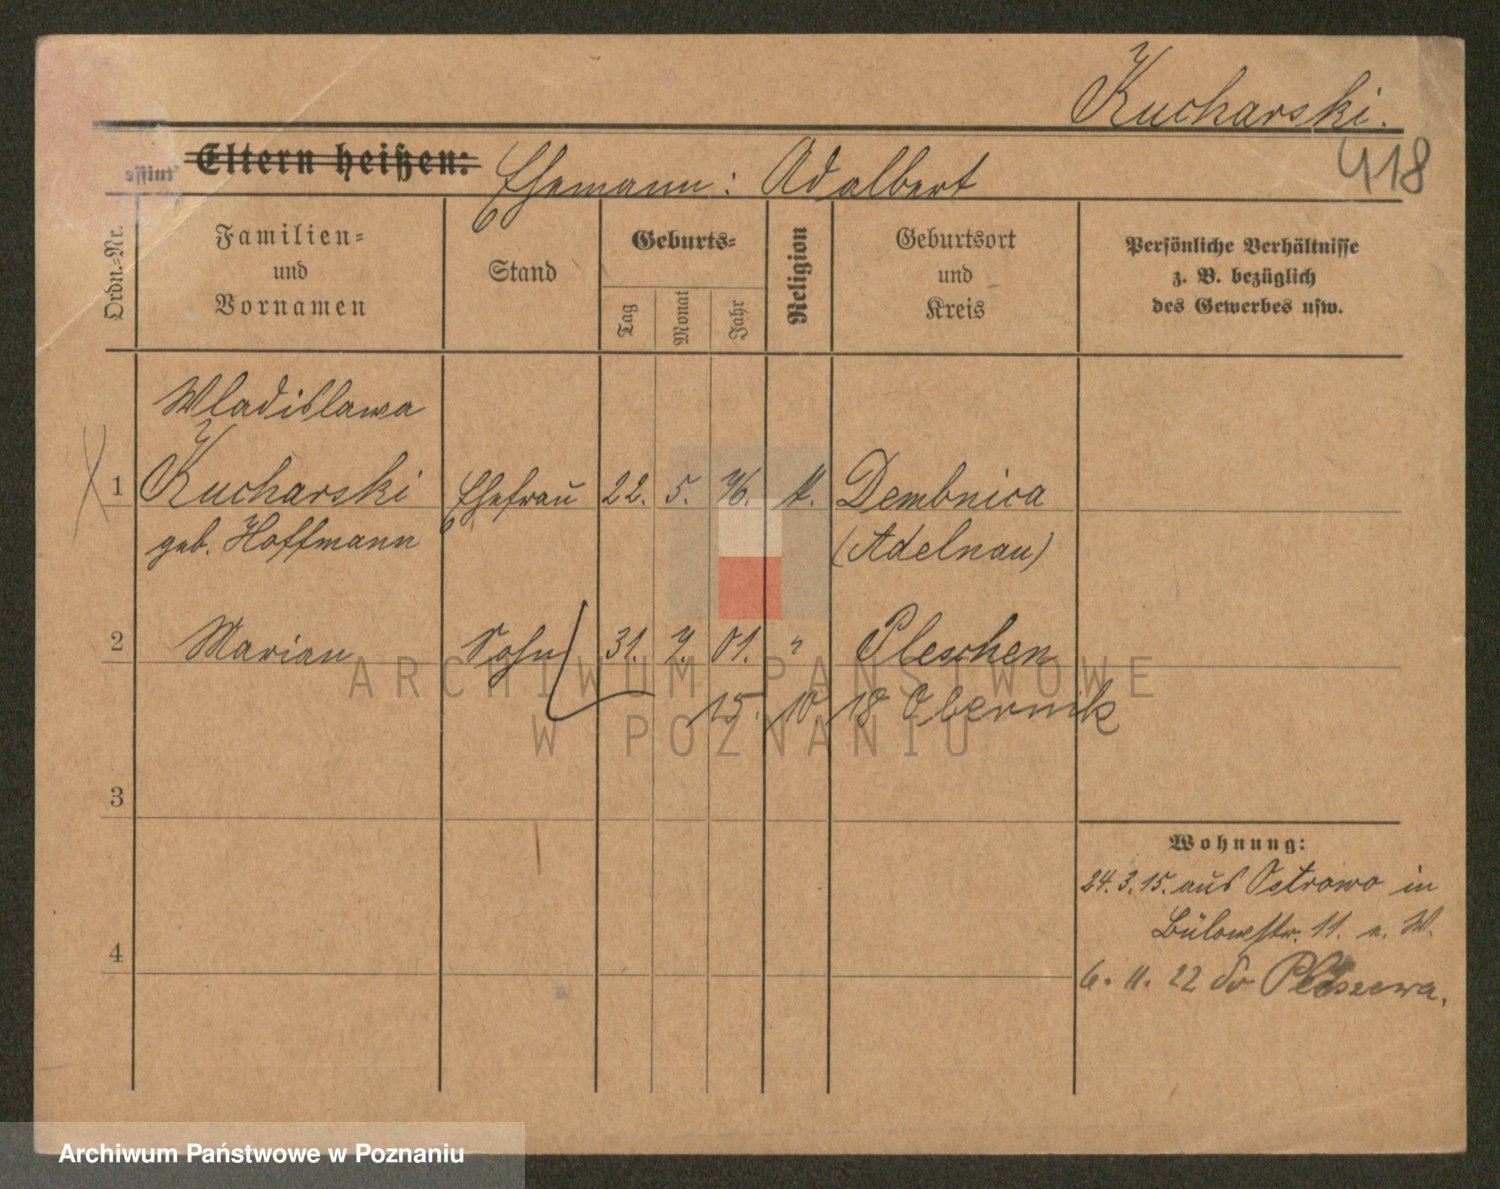 Kucharski.
418
Eltern heißen: Ehemann: Adalbert
Ordn.-Nr.
Familien-
und
Vornamen
Stand
Geburts-
Tag
Monat
Jahr
Religion
Geburtsort
und
Kreis
Persönliche Verhältnisse
z. B. bezüglich
des Gewerbes usw.
Wladislawa
1 Kucharski Ehefrau 22. 5. 76. k. Dembnica
geb. Hoffmann (Adelnau)
2 Marian Sohn 31. 7. 01. " Pleschen
15. 10 18 Obernik
3
Wohnung:
24.3.15. aus Ostrowo in
Bülowstr. 11. b. W.
4
6. 11. 22 do Pleszewa.
ARCHIWUM PAŃSTWOWE
W POZNANIU
Archiwum Państwowe w Poznaniu